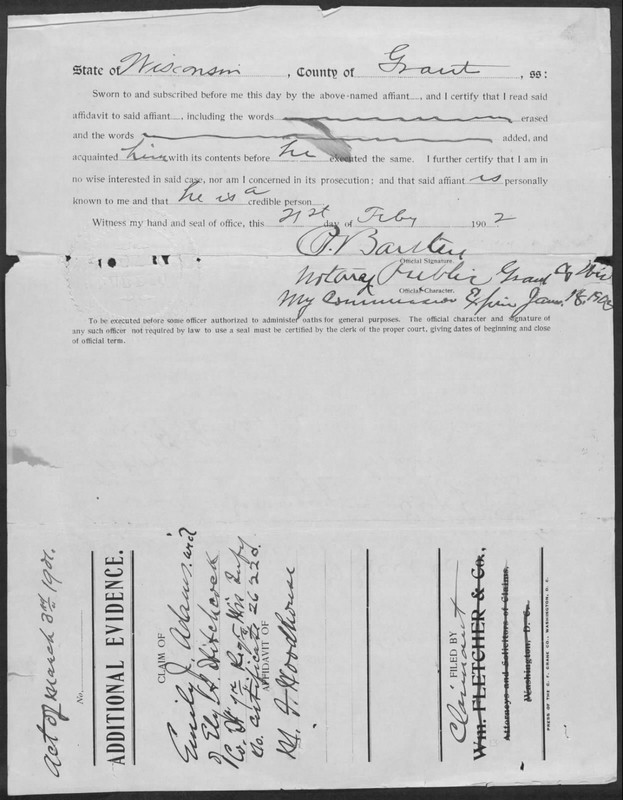 State of Wisconsin, County of Grant, ss:
Sworn to and subscribed before me this day by the above-named affiant...., and I certify that I read said
affidavit to said affiant...., including the words erased
and the words added, and
acquainted him with its contents before he executed the same. I further certify that I am in
no wise interested in said case, nor am I concerned in its prosecution; and that said affiant is personally
known to me and that he is a credible person....
Witness my hand and seal of office, this 21st day of Feby 1902
Official Signature.
Notary Public Grant Co Wis
Official Character.
My Commission Expires Jany.
To be executed before some officer authorized to administer oaths for general purposes. The official character and signature of
any such officer not required by law to use a seal must be certified by the clerk of the proper court, giving dates of beginning and close
of official term.
Act of March 3rd 1901.
No.
ADDITIONAL EVIDENCE.
CLAIM OF
Emily J. Adams, wid
of Ely H. Hitchcock
Co.
Co. Certificate
AFFIDAVIT OF
Woodhouse
FILED BY
Claimant
Wm. FLETCHER & Co.,
Attorneys and Solicitors of Claims,
Washington, D. C.